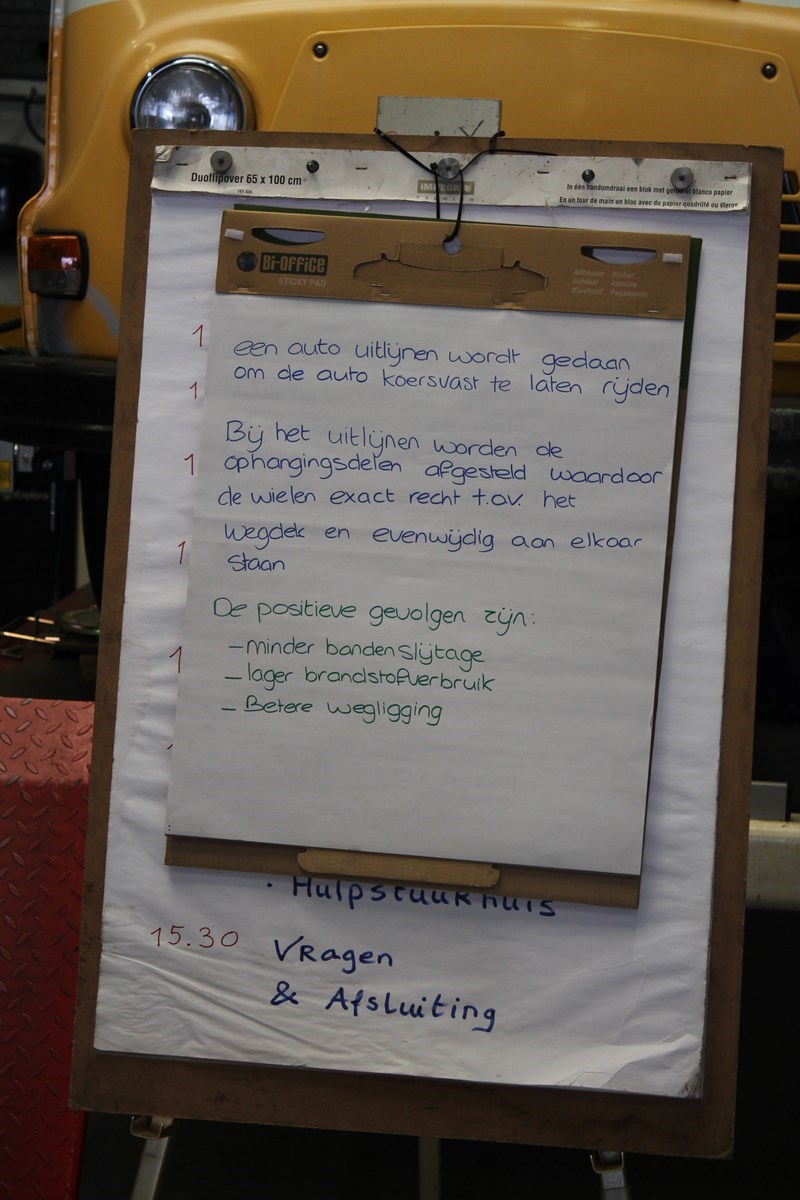 Duoflipover 65 x 100 cm
In één handomdraai een blok met geruit of blanco papier
En un tour de main un bloc avec du papier quadrillé ou vierge
Bi-Office
STICKY PAD
1
een auto uitlijnen wordt gedaan
1
om de auto koersvast te laten rijden
Bij het uitlijnen worden de
1
ophangingsdelen afgesteld waardoor
de wielen exact recht t.o.v. het
1
wegdek en evenwijdig aan elkaar
staan
De positieve gevolgen zijn:
1
- minder bandenslijtage
- lager brandstofverbruik
- Betere wegligging
· Hulpstuukhuis
15.30 Vragen
& Afsluiting